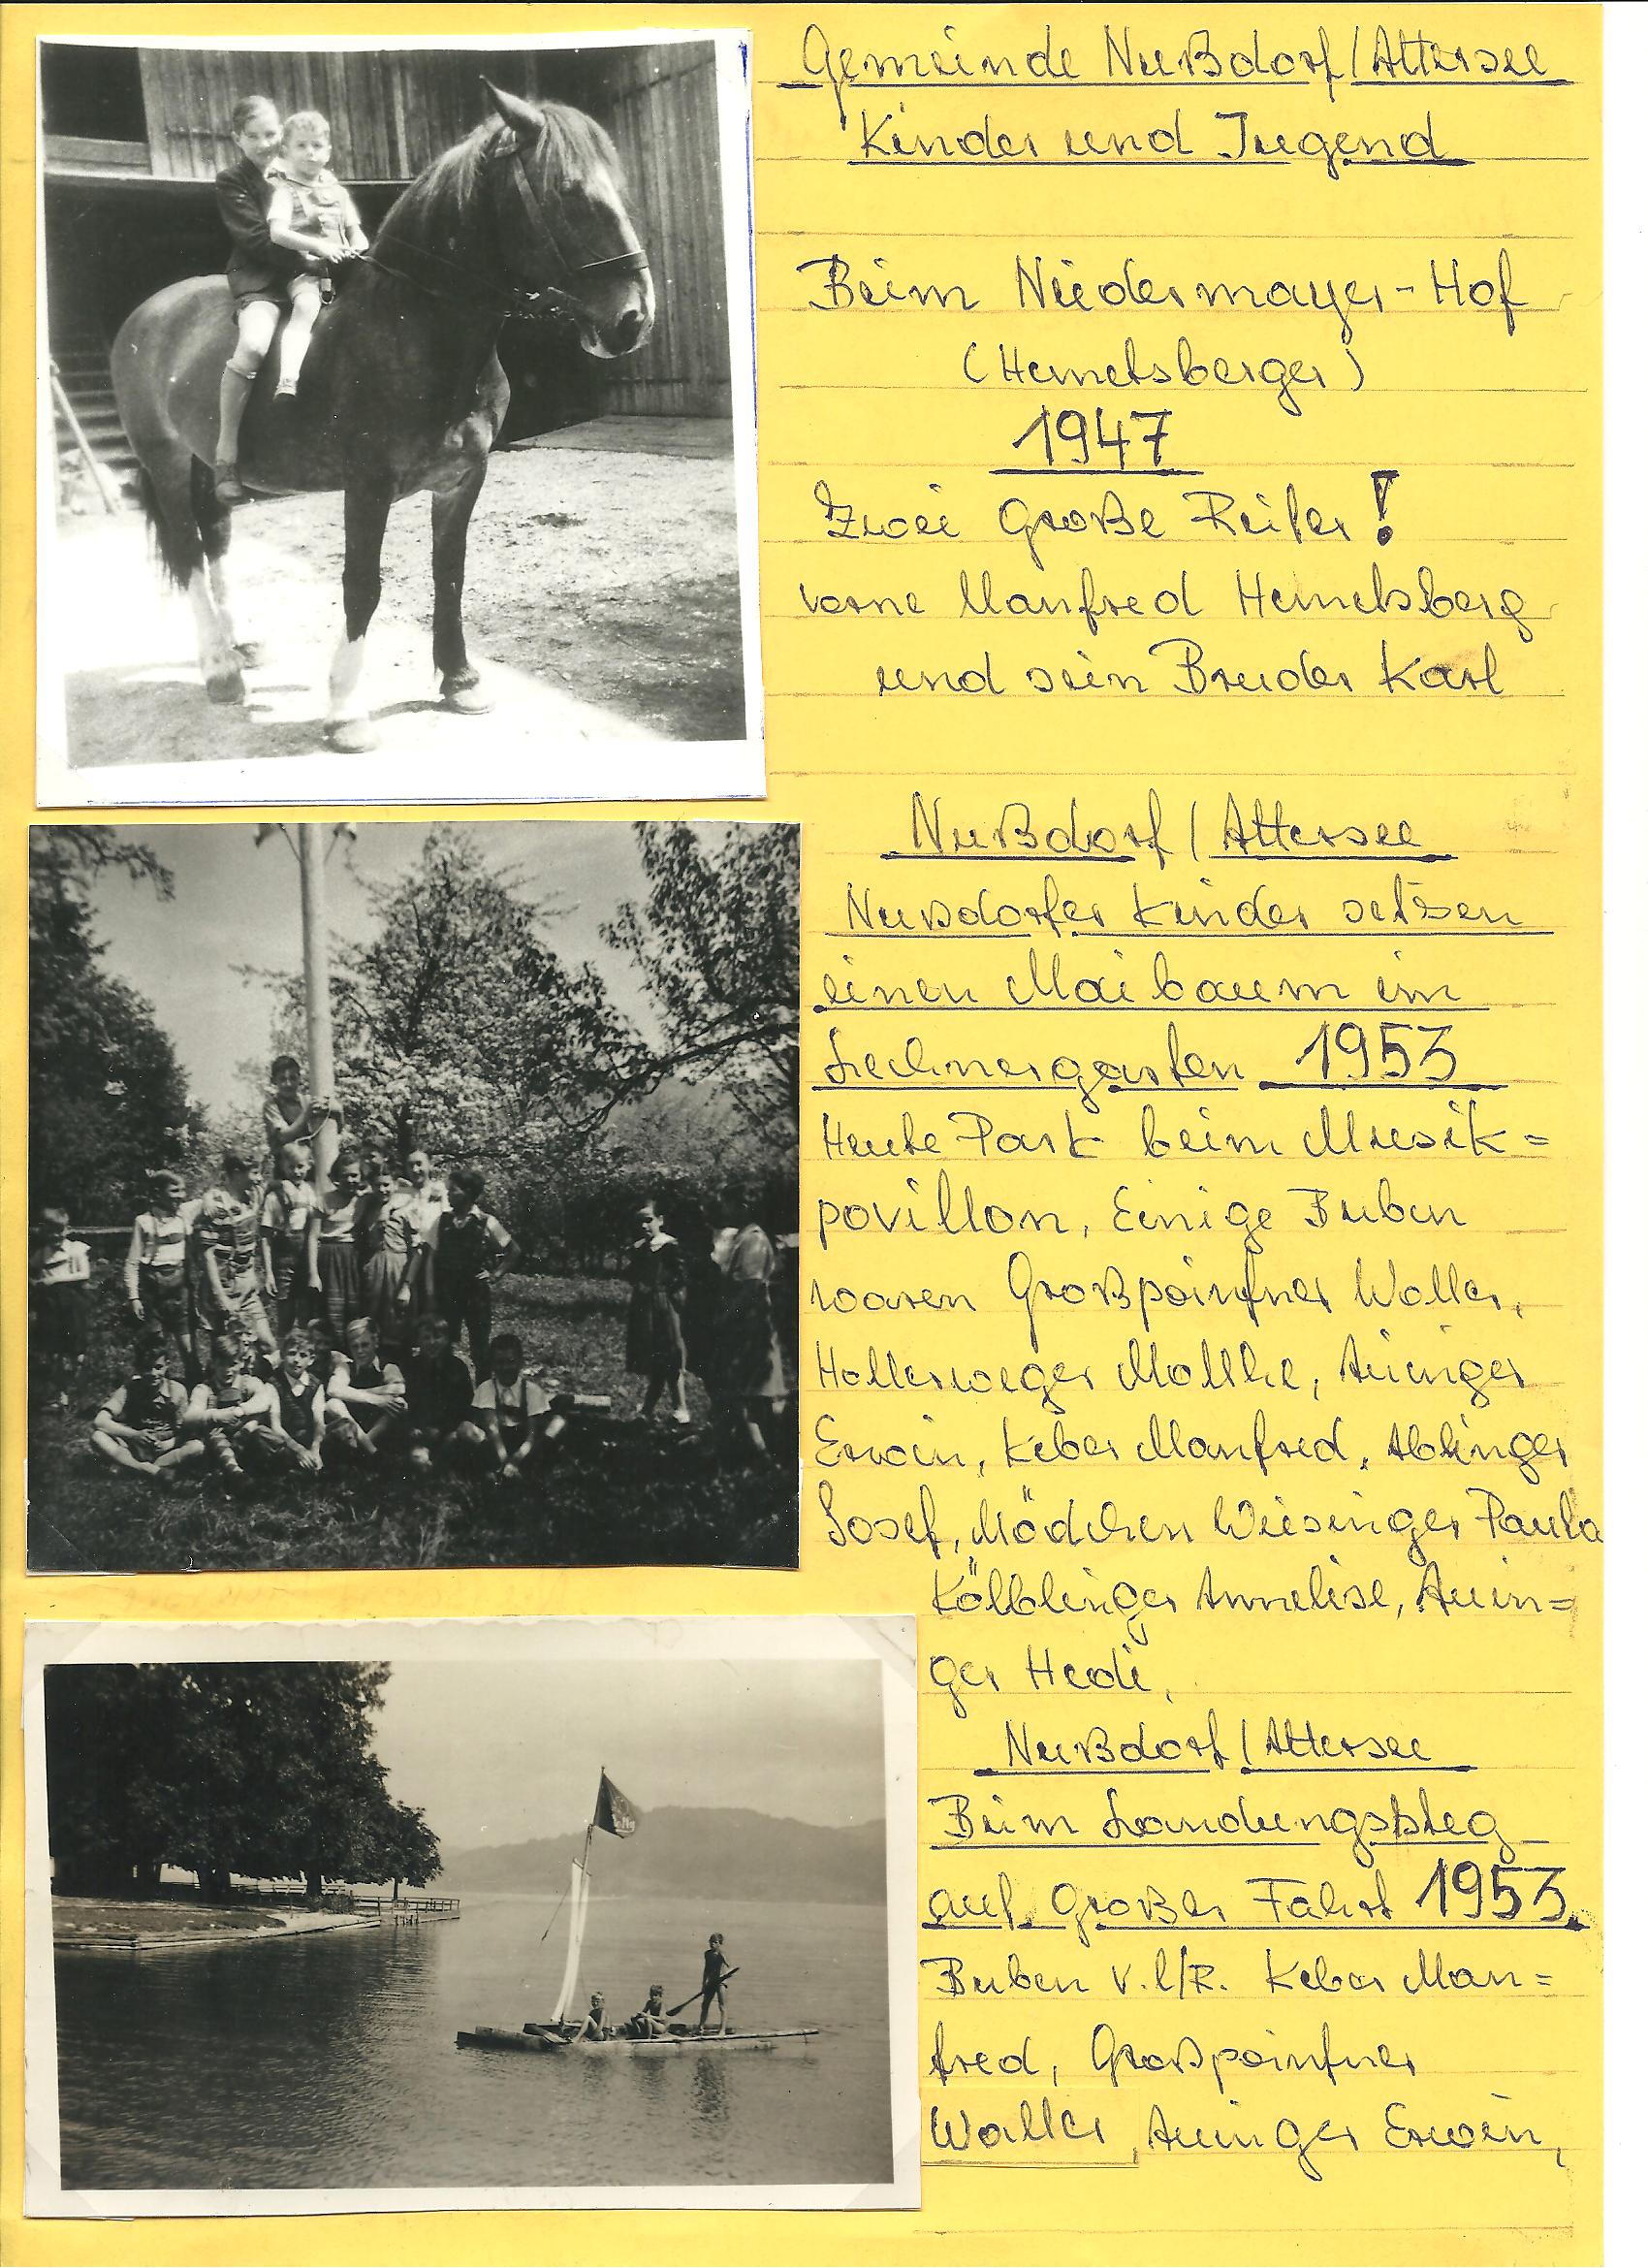 Gemeinde Nußdorf/Attersee
Kinder und Jugend
Beim Niedermayer-Hof
(Hemetsberger)
1947
Zwei Große Reiter!
vorne Manfred Hemetsberg
und sein Bruder Karl
Nußdorf/Attersee
Nussdorfer Kinder setzen
einen Maibaum im
Lechnergarten 1953
Heute Park beim Musik=
povillon, Einige Buben
waren Großpointner Walter,
Hollerweger Malthe, Auinger
Erwin, Keber Manfred, Ablinger
Josef, Mädchen Wiesinger Paula
Kölblinger Annelise, Auin=
ger Hedi,
Nußdorf/Attersee
Beim Landungssteg
auf großer Fahrt 1953.
Buben v.l/R. Keber Man=
fred, Großpointner
Walter, Auinger Erwin,